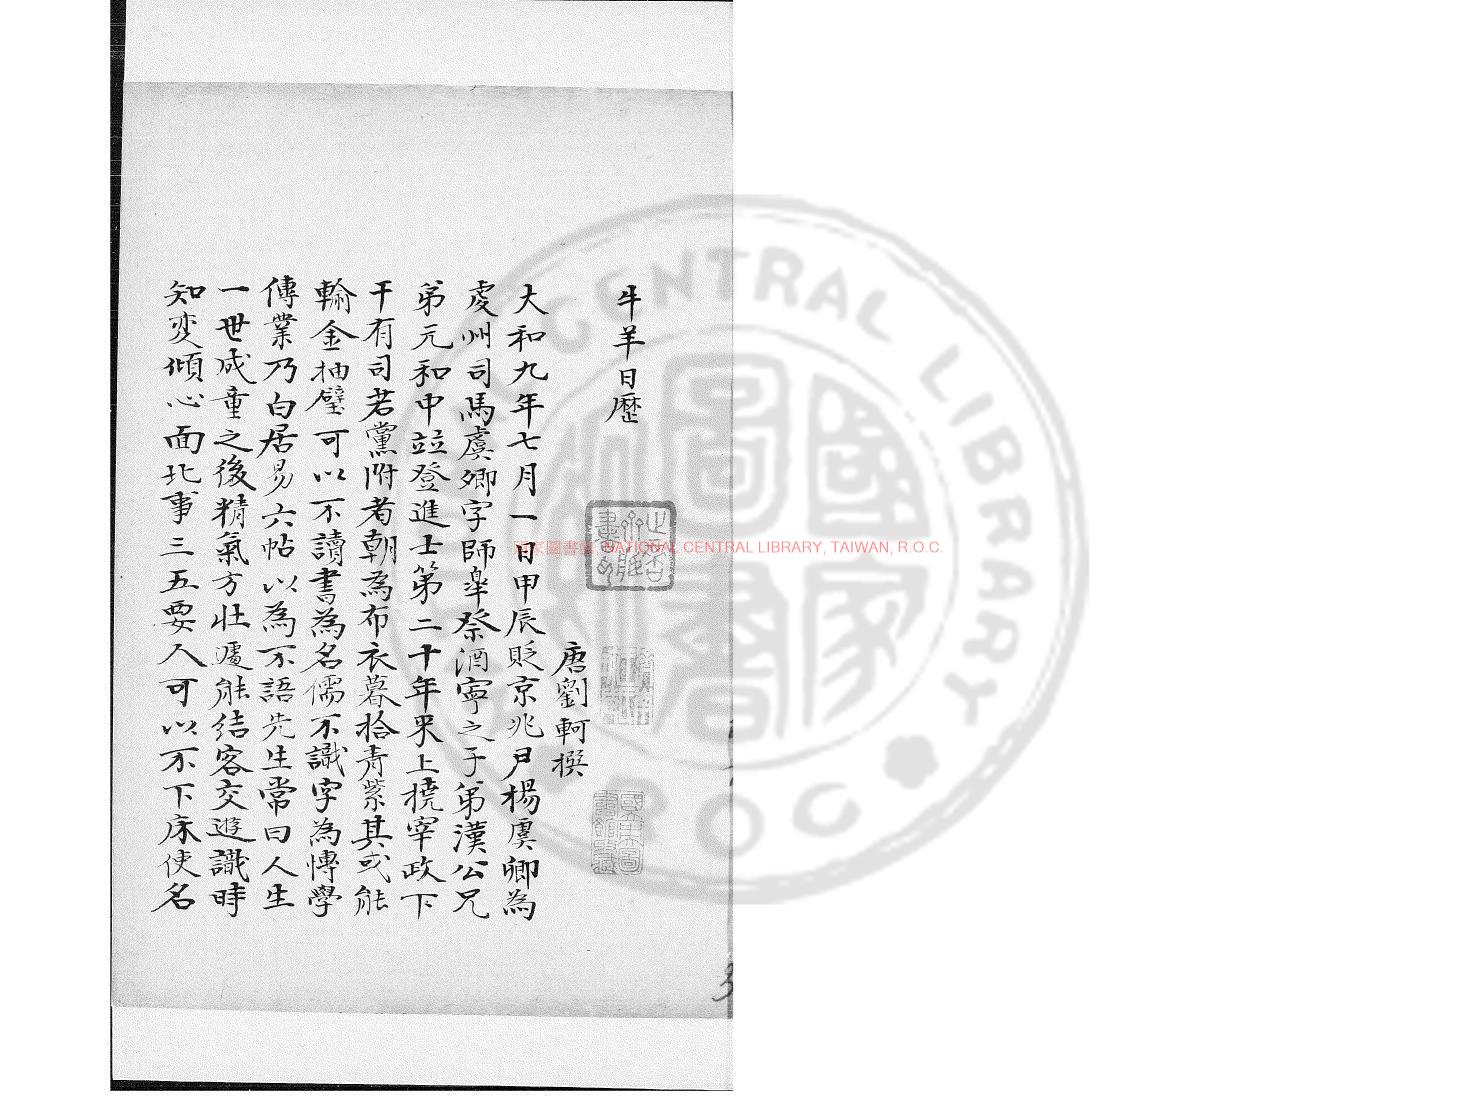 牛羊日歷
唐劉軻撰
大和九年七月一日甲辰貶京兆尹楊虞卿為
虔州司馬虞卿字師皋祭酒寧之子弟漢公兄
弟元和中竝登進士第二十年来上撓宰政下
干有司若黨附者朝為布衣暮拾青紫其或能
輸金抽璧可以不讀書為名儒不識字為博學
傳業乃白居易六帖以為不語先生常曰人生
一世成童之後精氣方壯遽能結客交遊識時
知变傾心面北事三五要人可以不下床使名
國家圖書館, NATIONAL CENTRAL LIBRARY, TAIWAN, R.O.C.
NATIONAL CENTRAL LIBRARY R O C
國家圖書館